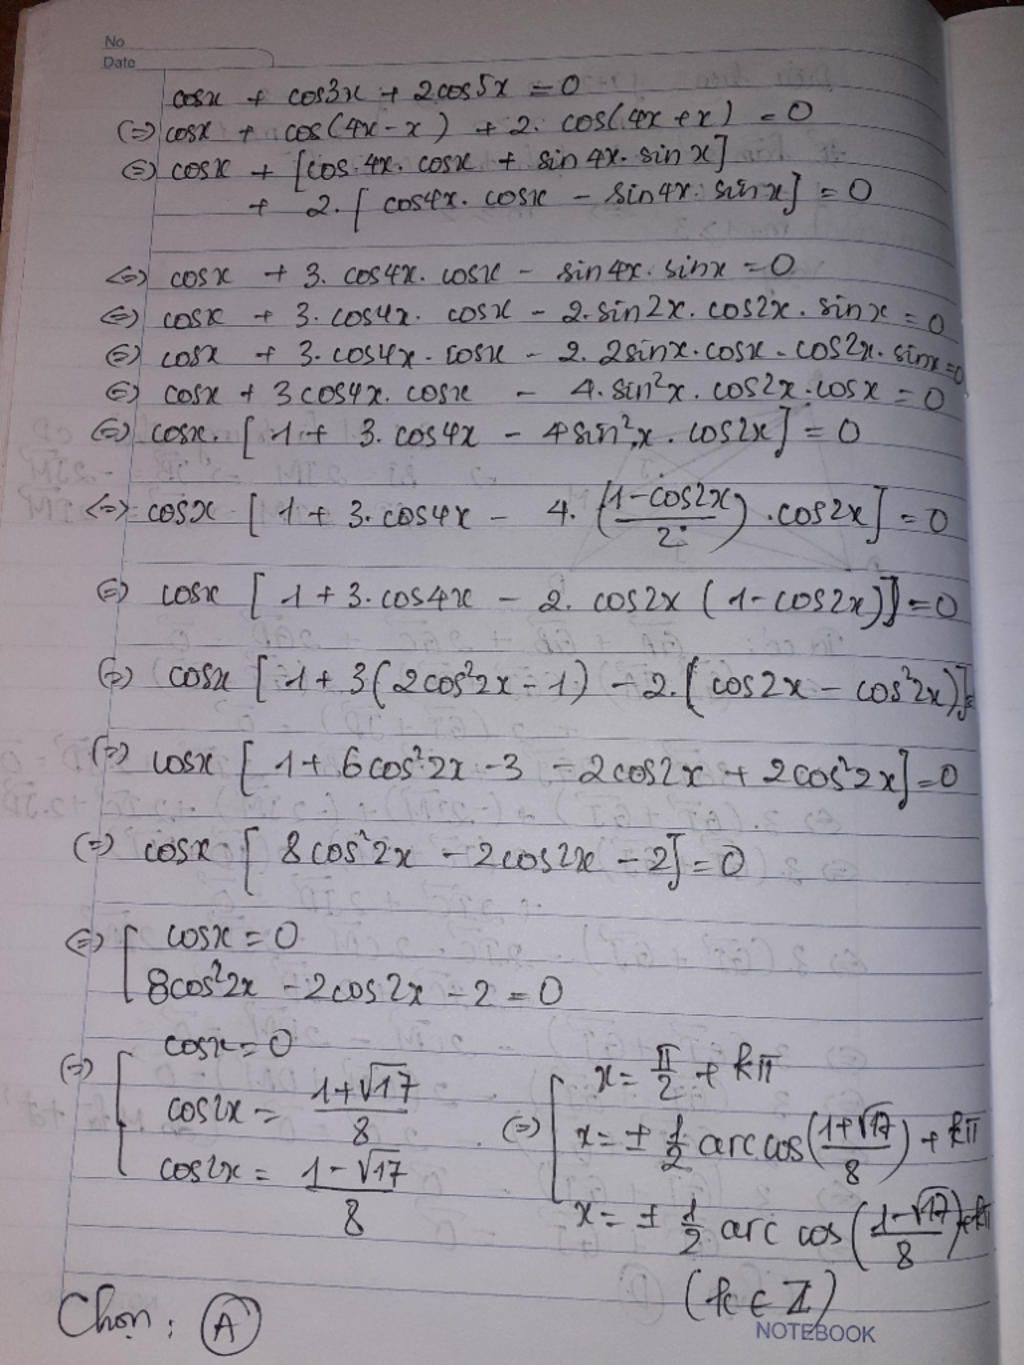 No
Date
cosx + cos3x + 2cos5x = 0
(=) cosx + cos(4x-x) + 2. cos(4x+x) = 0
(=) cosx + [cos.4x. cosx + sin4x. sinx]
+ 2. [cos4x. cosx - sin4x. sinx] = 0
<=> cosx + 3. cos4x. cosx - sin4x. sinx = 0
(=) cosx + 3. cos4x. cosx - 2.sin2x. cos2x. sinx = 0
(=) cosx + 3. cos4x. cosx - 2. 2sinx. cosx. cos2x. sinx = 0
(=) cosx + 3cos4x. cosx - 4. sin²x. cos2x. cosx = 0
(=) cosx. [1 + 3. cos4x - 4sin²x. cos2x] = 0
<=> cosx [1 + 3. cos4x - 4. (1-cos2x)/2 . cos2x] = 0
(=) cosx [1 + 3. cos4x - 2. cos2x (1-cos2x)] = 0
(=) cosx [1 + 3(2cos²2x - 1) - 2. [cos2x - cos²2x)] =
(=) cosx [1 + 6cos²2x - 3 - 2cos2x + 2cos²2x] = 0
(=) cosx [8cos²2x - 2cos2x - 2] = 0
(=) [ cosx = 0
8cos²2x - 2cos2x - 2 = 0
(=) [ cosx = 0
cos2x = (1+√17)/8
cos2x = (1-√17)/8
(=) [ x = π/2 + kπ
x = ± 1/2 arc cos((1+√17)/8) + kπ
x = ± 1/2 arc cos((1-√17)/8) + kπ
(k ∈ Z)
Chọn: A
NOTEBOOK